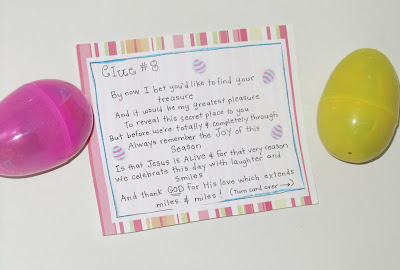 Clue #8
By now I bet you'd like to find your
treasure
And it would be my greatest pleasure
To reveal this secret place to you
But before we're totally & completely through
Always remember the Joy of this
Season
Is that Jesus is ALIVE & for that very reason
We celebrate this day with laughter and
smiles
And thank GOD for His love which extends
miles & miles! (Turn card over →)